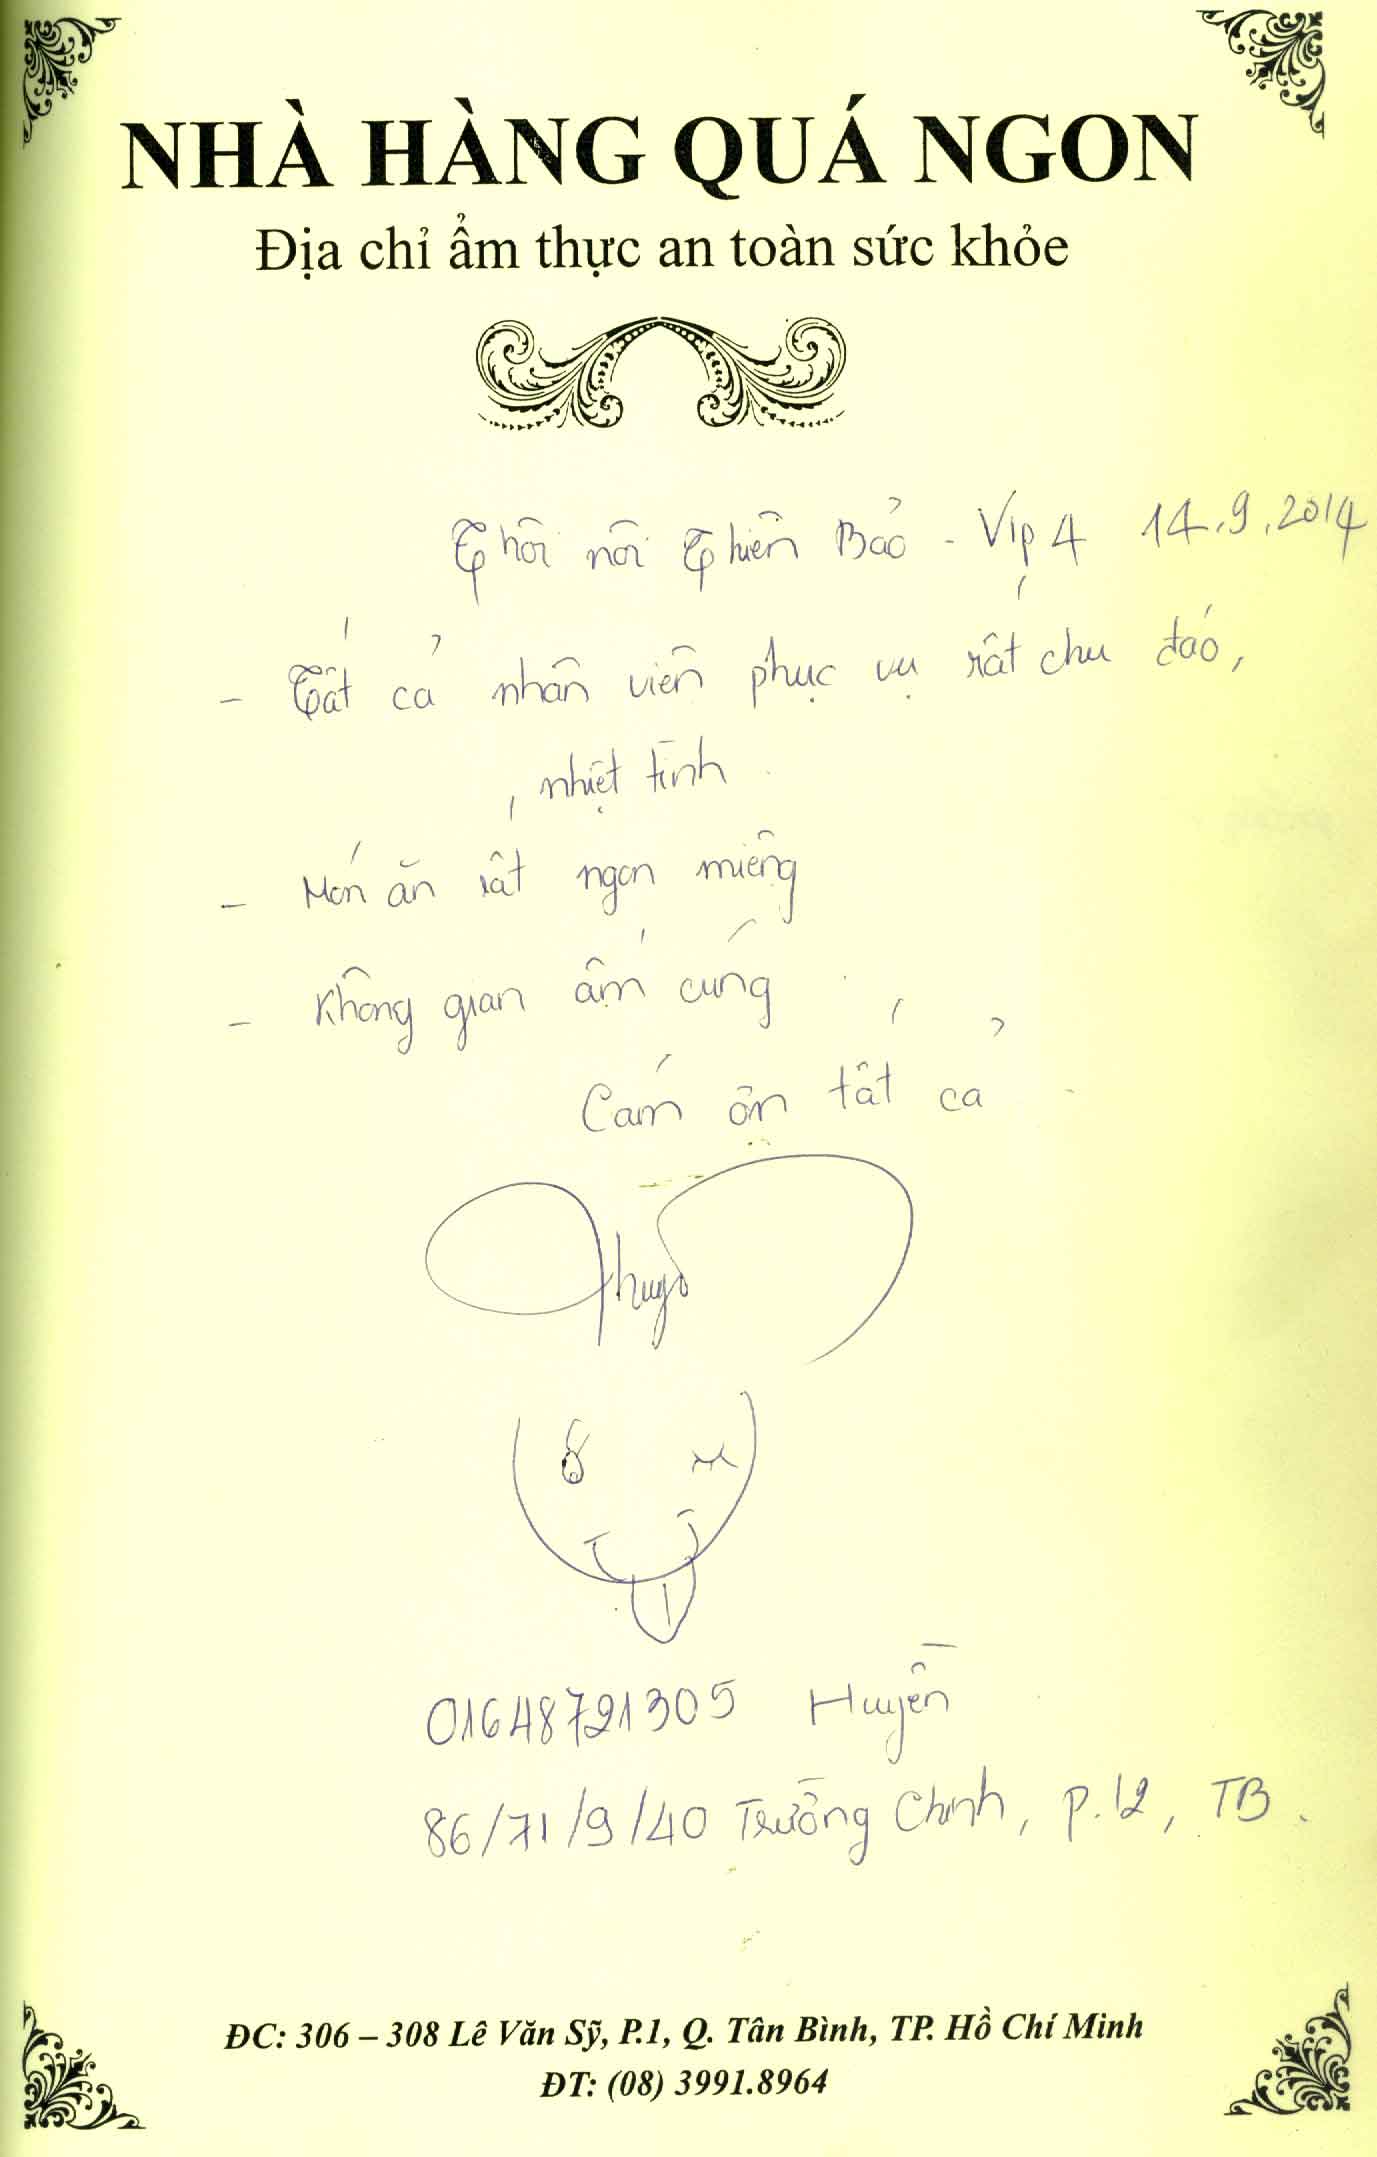 NHÀ HÀNG QUÁ NGON
Địa chỉ ẩm thực an toàn sức khỏe
Thôi nôi Thiên Bảo - Vip 4 14.9.2014
- Tất cả nhân viên phục vụ rất chu đáo,
nhiệt tình
- Món ăn rất ngon miệng
- Không gian ấm cúng
Cám ơn tất cả
01648721305 Huyền
86/71/9/40 Trường Chinh, p.12, TB.
ĐC: 306 – 308 Lê Văn Sỹ, P.1, Q. Tân Bình, TP. Hồ Chí Minh
ĐT: (08) 3991.8964